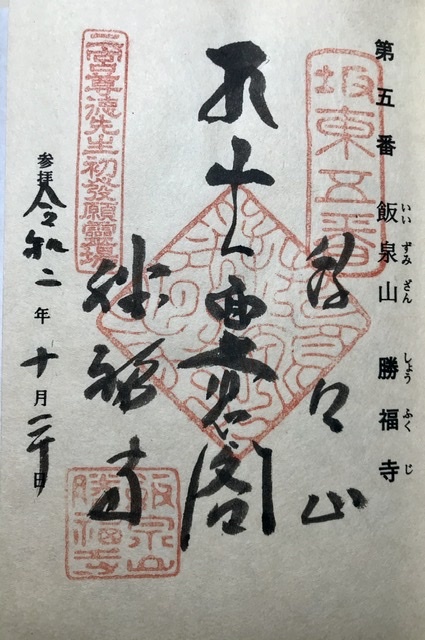 第五番 飯泉山 勝福寺
いいずみざん しょうふくじ
坂東五番
飯泉山
閣
勝福寺
二宮尊徳先生初發願靈場
参拝 令和二年十月二十日
飯泉山
勝福寺